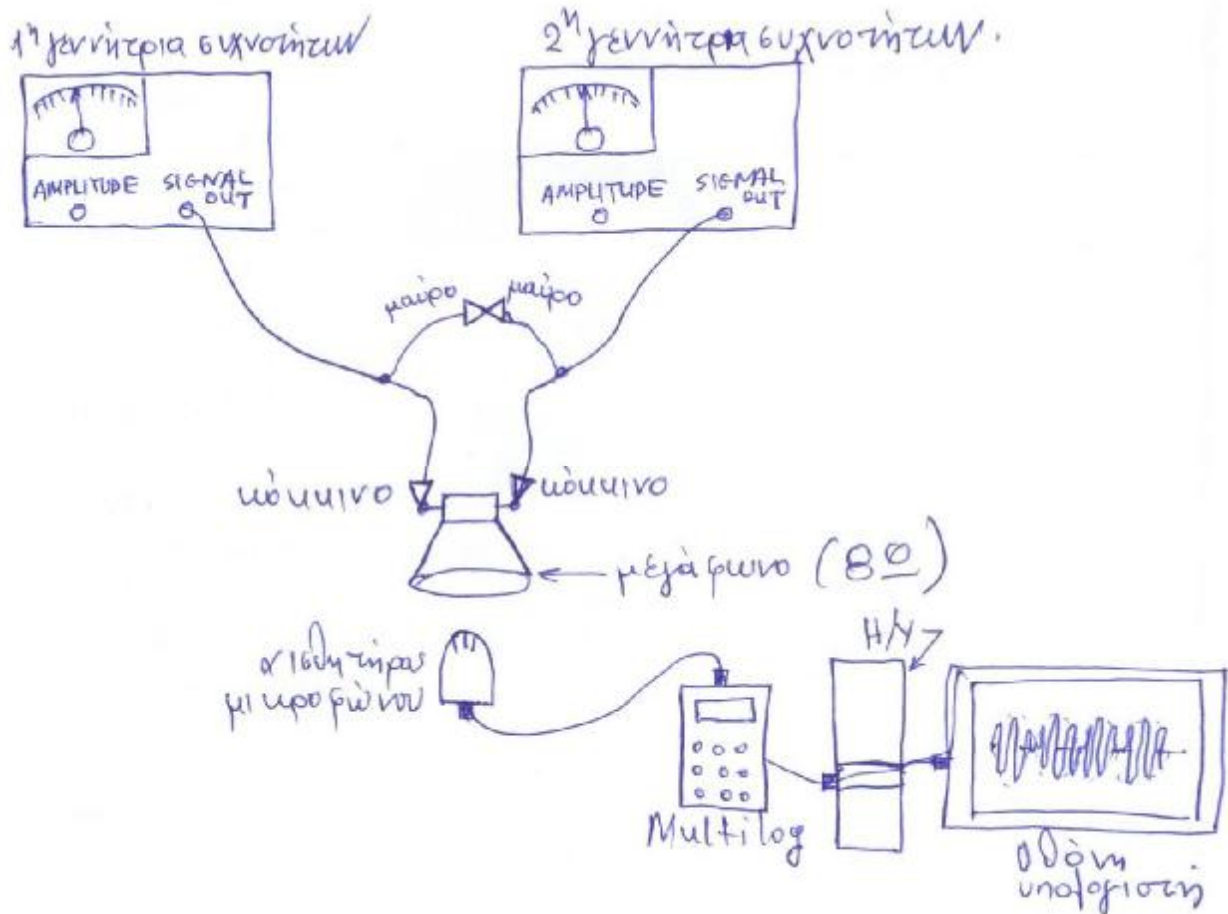 1η γεννήτρια συχνοτήτων
2η γεννήτρια συχνοτήτων.
AMPLITUDE
SIGNAL
OUT
AMPLITUDE
SIGNAL
OUT
μαύρο
μαύρο
κόκκινο
κόκκινο
μεγάφωνο (8Ω)
αισθητήρας
μικροφώνου
Η/Υ
Multilog
οθόνη
υπολογιστή